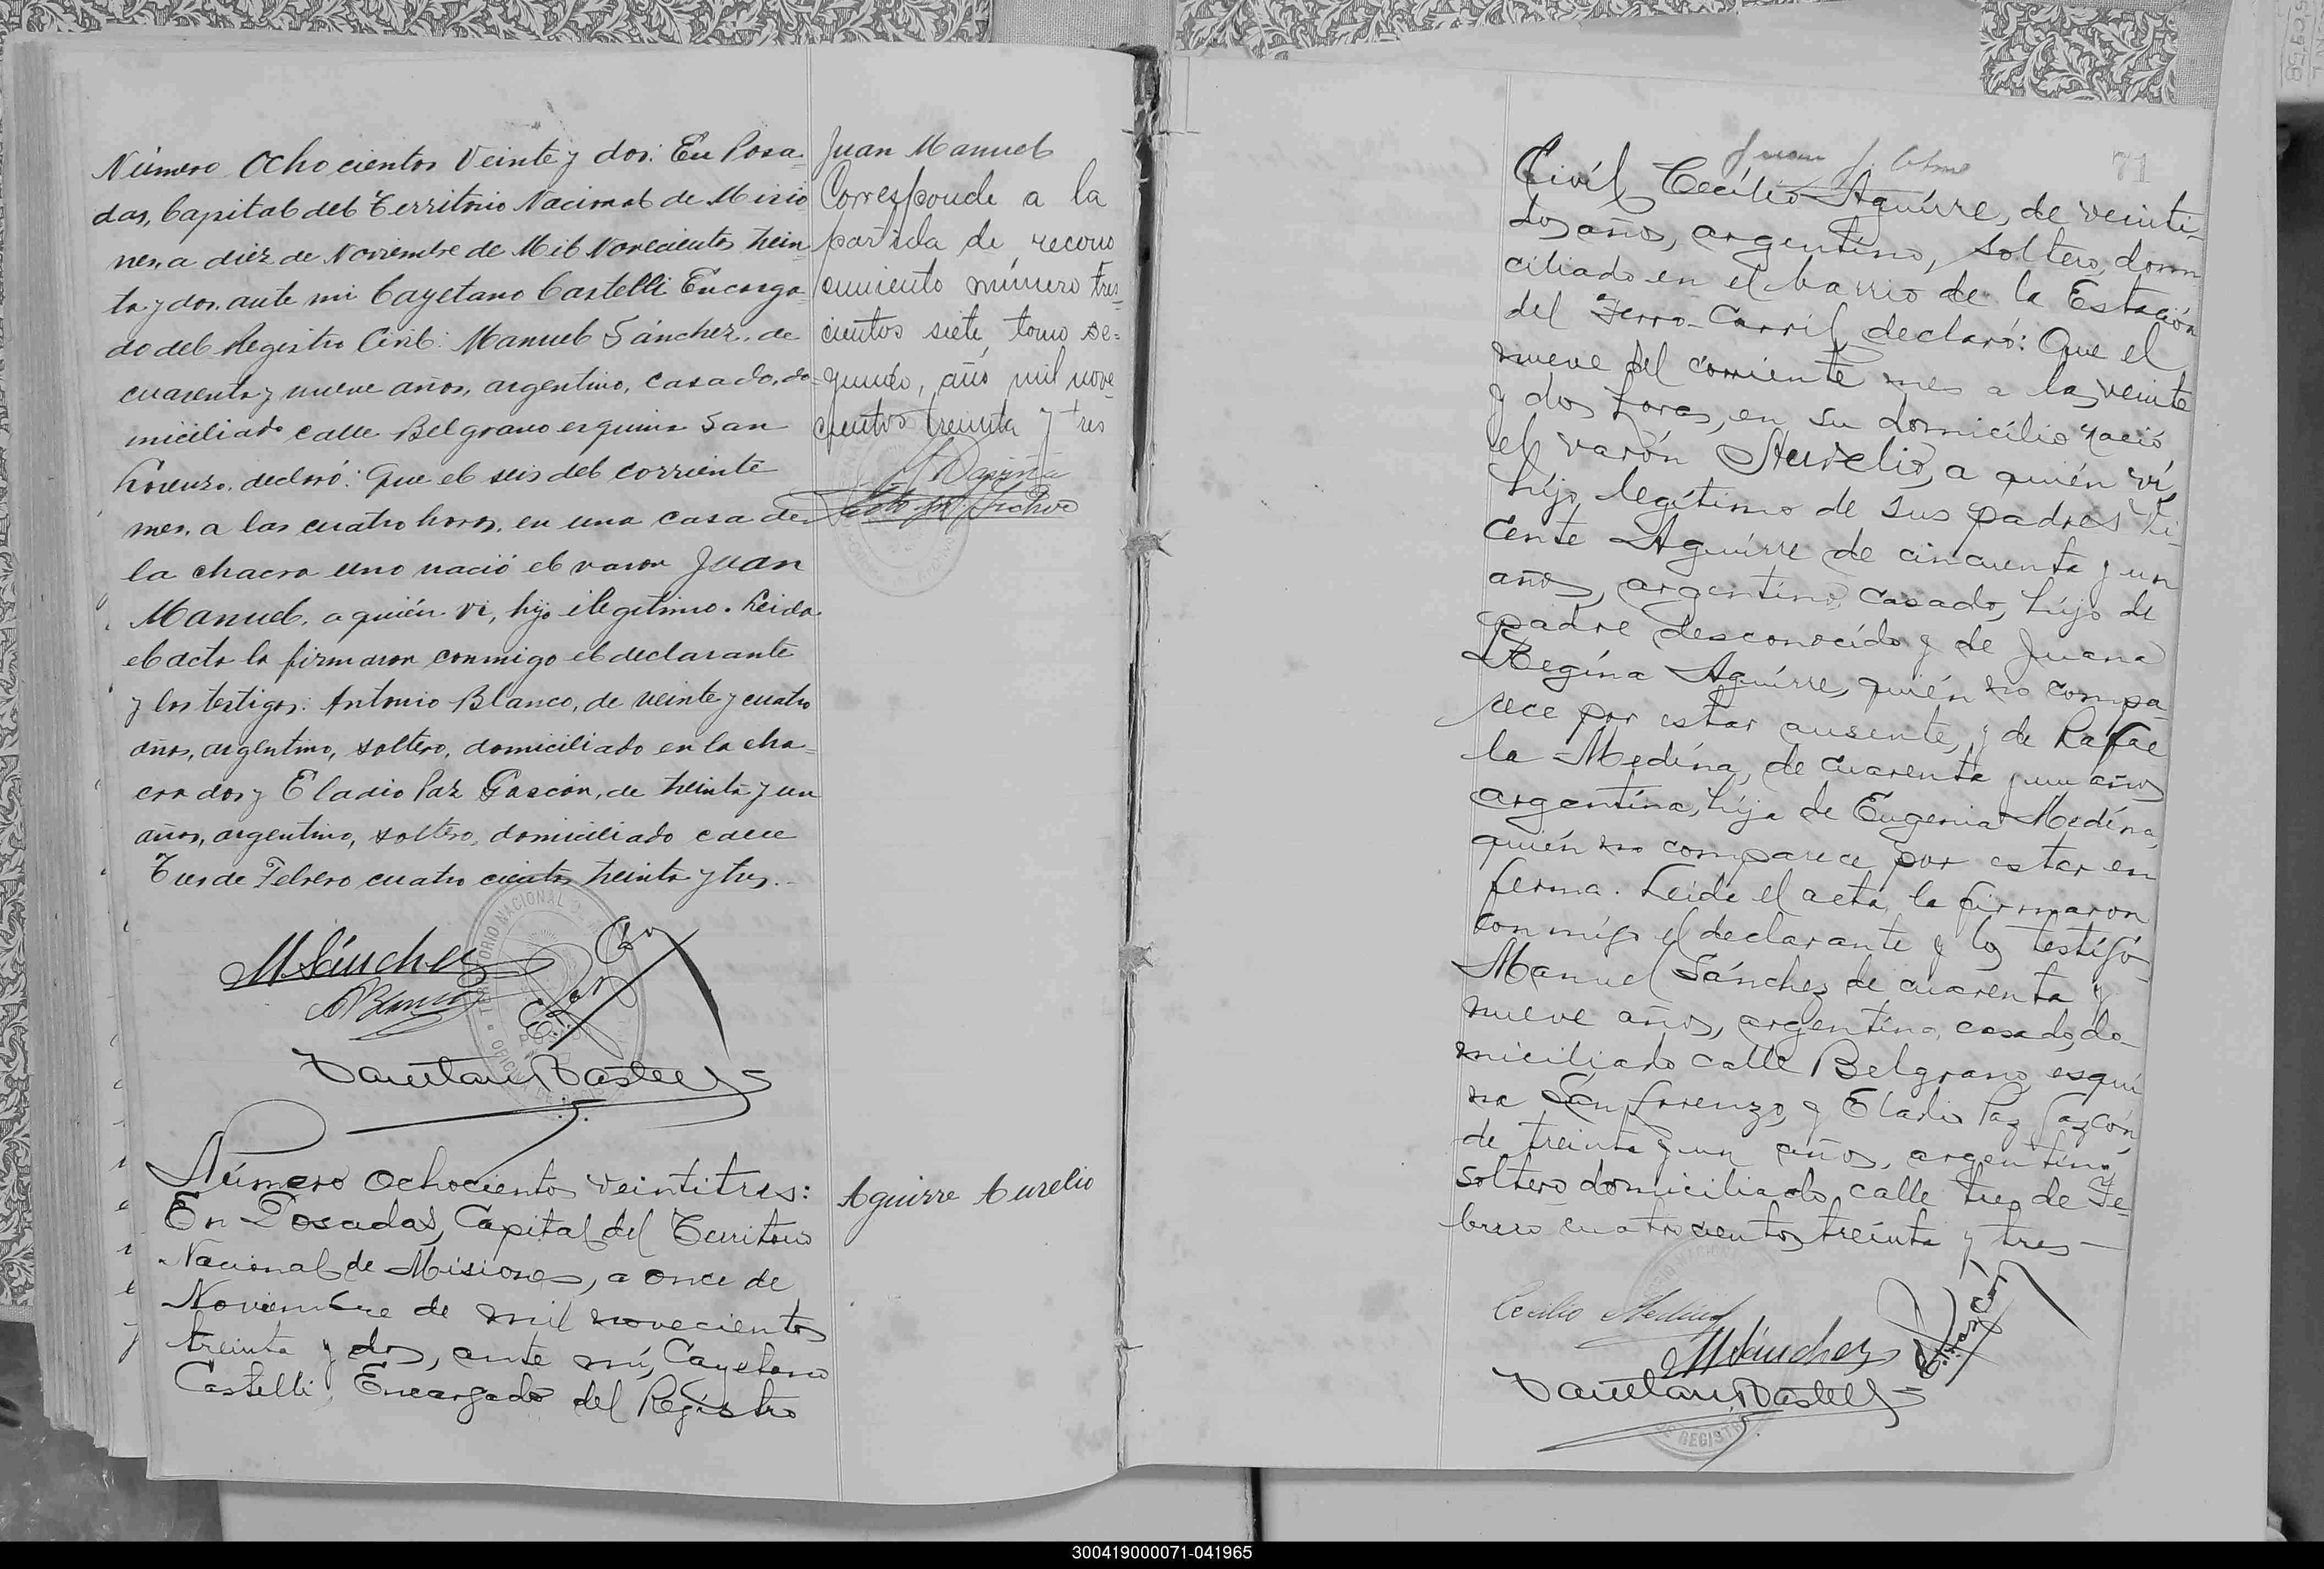 Número Ochocientos Veinte y dos: En Posa-
das, Capital del Territorio Nacional de Misio-
nes, a diez de Noviembre de Mil Novecientos trein-
ta y dos, ante mi Cayetano Castelli Encarga-
do del Registro Civil: Manuel Sánchez, de
cuarenta y nueve años, argentino, casado, do-
miciliado calle Belgrano esquina San
Lorenzo, declaró: Que el seis del corriente
mes, a las cuatro horas, en una casa de
la chacra uno nació el varon Juan
Manuel, a quién vi, hijo ilegitimo. Leida
el acta la firmaron conmigo el declarante
y los testigos: Antonio Blanco, de veinte y cuatro
años, argentino, soltero, domiciliado en la cha-
cra dos y Eladio Paz Gascón, de treinta y un
años, argentino, soltero, domiciliado calle
Tres de Febrero cuatro cientos treinta y tres.-
M Sánchez
A Blanco
E. Paz
Cayetano Castelli
Juan Manuel
Corresponde a la
partida de recono
cimiento número tres-
cientos siete, tomo se-
gundo, año mil nove-
cientos treinta y tres
Número Ochocientos veintitres:
En Posadas, Capital del Territorio
Nacional de Misiones, a once de
Noviembre de mil novecientos
treinta y dos, ante mí, Cayetano
Castelli, Encargado del Registro
Aguirre Aurelio
71
Civíl Cecílio Aguírre, de veinti-
dos años, argentíno, soltero, domi-
ciliado en el barrio de la Estación
del Ferro-Carríl, declaró: Que el
nueve del corriente mes a las veinte
y dos horas, en su domicílio nació
el varón Aurelio, a quién ví,
híjo legítimo de sus padres Vi-
cente Aguírre de cincuenta y un
años, argentíno, casado, híjo de
padre desconocído y de Juana
Regína Aguírre, quién no compa-
rece por estar ausente, y de Rafae
la Medína, de cuarenta y un años
argentína, híja de Eugenia Medína,
quién no comparece por estar en
ferma. Leída el acta, la firmaron
conmígo el declarante y los testígo-
Manuel Sánchez de cuarenta y
nueve años, argentíno, casado, do-
miciliado calle Belgrano esquí
na San Lorenzo, y Eladio Paz Gazcón
de treinta y un años, argentíno,
soltero domiciliado calle tres de Fe-
brero cuatrocientos treínta y tres—
Cecilio Medina
M Sánchez
Cayetano Castelli
300419000071-041965